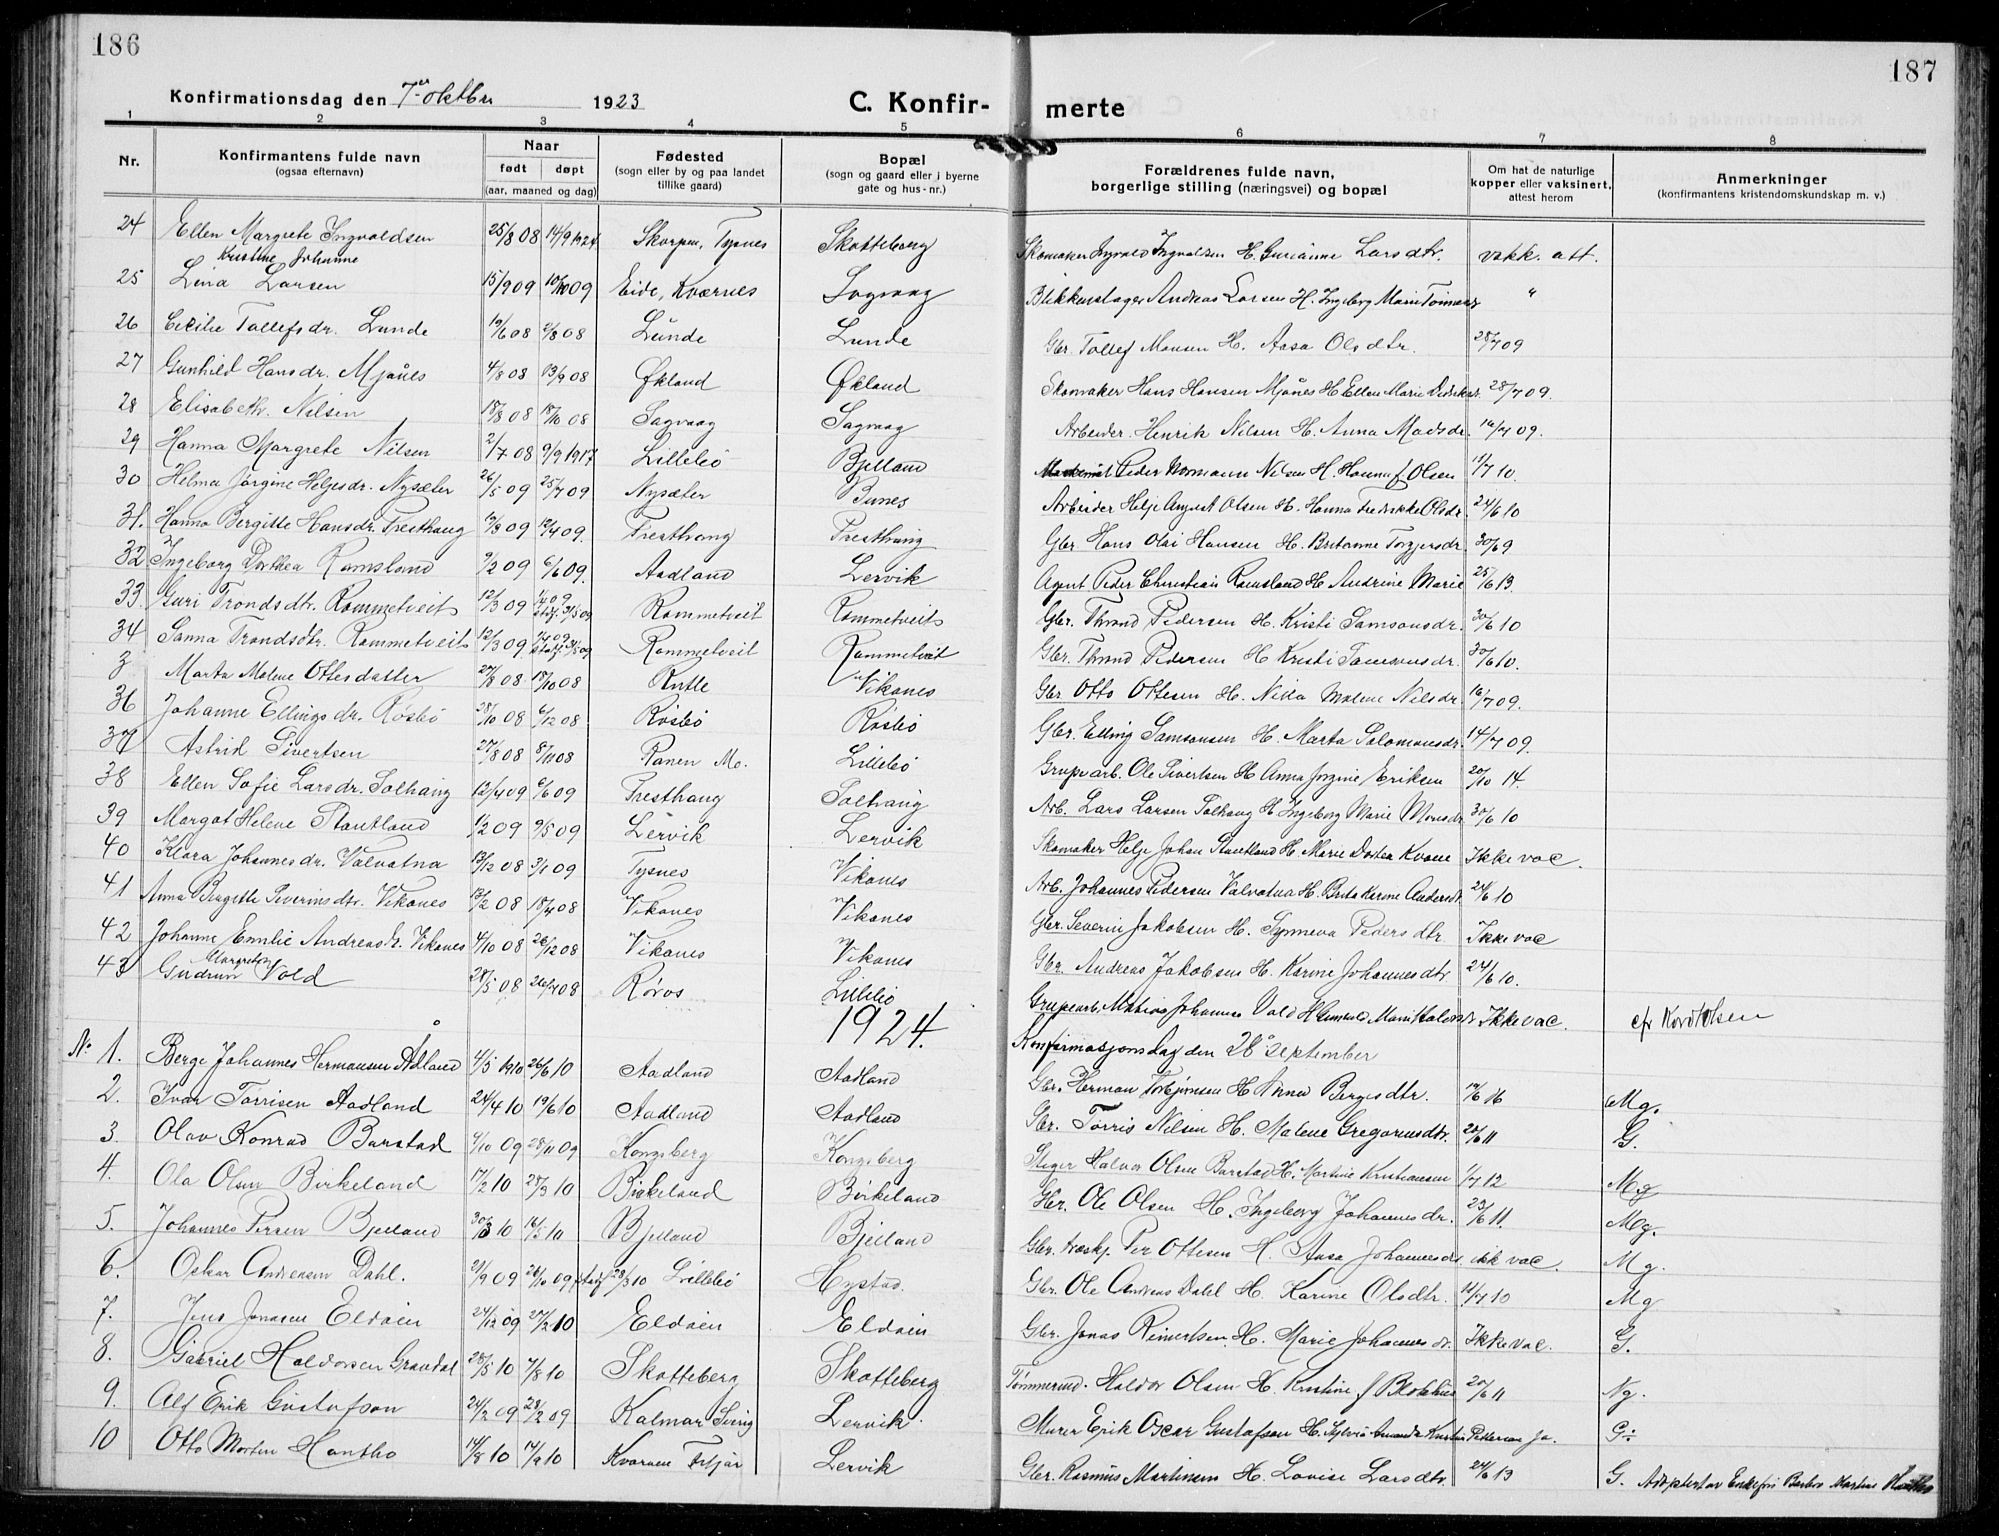 186
187
Konfirmationsdag den 7de oktbr 1923
C. Konfir- merte
1 2 3 4 5 6 7 8
Nr. Konfirmantens fulde navn (ogsaa efternavn) Naar født døpt (aar, maaned og dag) Fødested (sogn eller by og paa landet tillike gaard) Bopæl (sogn og gaard eller i byerne gate og hus-nr.) Forældrenes fulde navn, borgerlige stilling (næringsvei) og bopæl Om hat de naturlige kopper eller vaksinert, attest herom Anmerkninger (konfirmantens kristendomskundskap m. v.)
24 Ellen Margrete Ingvaldsen 25/8 08 14/9 1924 Skorpen, Tysnes Skotteberg Skomaker Ingvald Ingvaldsen H. Gurianne Larsdtr. vakk. att.
25 Lina Kristine Johanne Larsen 15/9 09 10/10 09 Eide, Kværnes Sagvaag Blikkenslager Andreas Larsen H. Ingeborg Marie "
26 Cecilie Tollefsdr. Lunde 19/6 08 2/8 08 Lunde Lunde Gbr. Tollef Monsen H. Aasa Olsdtr. 28/7 09
27 Gunhild Hansdr. Mjånes 4/8 08 13/9 08 Økland Økland Skomaker Hans Hansen Mjånes H Ellen Marie 28/7 09.
28 Elisabeth Nilsen 18/8 08 18/10 08 Sagvaag Sagvaag Arbeider. Henrik Nilsen H. Anna Madsdr. 16/7 09.
29 Hanna Margrete Nilsen 2/7 08 9/9 1917 Lillebø Bjelland Peder Normann Nilsen H. Hanna f. Olsen 11/7 10.
30 Helma Jørgine Heljesdr. Nysæter 26/5 09 25/7 09 Nysæter Bunes Arbeider Helje August Olsen H. Hanna Fredrikke Olsdr. 24/6 10
31. Hanna Bergitte Hansdr. Presthaug 19/3 09 12/4 09. Presthaug Presthaug Gbr. Hans Olai Hansen H. Britanne Torgersdr. 30/6 9
32 Ingeborg Dorthea Ramsland 9/2 09 6/6 09. Aadland Lervik Agent Peder Christian Ramsland H. Andrine Marie 25/6 13.
33. Guri Trondsdtr. Rommetveit 12/3 09 1/4 09 stadf. 31/5 09 Rommetveit Rommetveit Gbr. Thrond Pedersen H. Kristi Samsonsdr. 30/6 10
34 Sanna Trondsdtr. Rommetveit 12/3 09 1/4 09 stadf. 31/5 09 Rommetveit Rommetveit Gbr. Thrond Pedersen H Kristi Samsonsdr. 30/6 10.
3 Marta Malene Ottesdatter 27/8 08 18/10 08 Rutle Vikanes Gbr Otto Ottesen H. Nilla Malene Nilsdr. 16/7 09.
36 Johanne Ellingsdr. Røsbø 28/10 08 6/12 08 Røsbø Røsbø Gbr. Elling Samsonsen H. Marta Salomonsdr. 14/7 09.
37 Astrid Sivertsen 27/8 08 8/11 08 Ranen Mo. Lillebø Grupearb. Ole Sivertsen H Anna Jørgine Eriksen 20/10 14.
38 Ellen Sofie Larsdr. Solhaug 12/4 09 6/6 09 Presthaug Solhaug Arb. Lars Larsen Solhaug H Ingeborg Marie Monsdr. 30/6 10
39 Margot Helene Stautland 1/2 09 9/5 09 Lervik Lervik Skomaker Helje Johan Stautland H. Marie Dortea Kvane Ikke vac.
40 Klara Johannesdr. Valvatna 13/12 08 3/1 09 Tysnes Vikanes Arb. Johannes Pedersen Valvatna H. Brita Karine Andersdr 24/6 10
41 Anna Bergitte Severinsdtr. Vikanes 13/2 08 18/4 08 Vikanes Vikanes Gbr. Severin Jakobsen H. Synneva Pedersdtr. Ikke vac
42 Johanne Emilie Andreasdr. Vikanes 4/10 08 26/12 08 Vikanes Vikanes Gbr. Andreas Jakobsen H. Karine Johannesdtr. 24/6 10.
43 Gudrun Margrete Vold 28/5 08 26/7 08 Røros Lillebø Grupearb. Matias Johannes Vold H Gunhild Marie Ikke vac. cfr Kordt Olsen
1924. Konfirmasjonsdag den 28de september
No 1. Berge Johannes Hermansen Ådland 4/5 1910 26/6 10 Aadland Aadland Gbr. Herman Torbjørnsen H Anna Bergesdtr. 19/6 16 Mg.
2. Ivar Tørrisen Aadland 24/4 10 19/6 10 Aadland Aadland Gbr. Tørris Nilsen H. Malene Gregoriusdtr. 20/6 11 G.
3. Olav Konrad Barstad 4/10 09 28/11 09 Kongsberg Kongsberg Stiger Halvor Olsen Barstad H. Martine Kristiansen 1/7 12 Mg
4. Ola Olsen Birkeland 17/2 10 28/3 10 Birkeland Birkeland Gbr. Ole Olsen H. Ingeborg Johannesdr. 23/6 11. Mg.
5. Johannes Persen Bjelland 30/3 10 16/5 10 Bjelland Bjelland Gbr. træskj. Per Ottesen H. Aasa Johannesdr. ikk vac. Mg.
6. Oskar Andreasen Dahl. 21/9 09 26/10 09 stadf 28/3 10 Lillebø Hystad. Gbr. Ole Andreas Dahl H. Karine Olsdtr. 11/7 10 Mg
7. Jens Jonasen Eldøien 24/12 09 27/2 10 Eldøien Eldøien Gbr. Jonas Reinertsen H. Marie Johannesdr. Ikke vac. G.
8. Gabriel Haldorsen Gravdal 28/5 10 7/8 10 Skotteberg Skotteberg Tømmermd. Haldor Olsen H. Kristine f Blokhus 20/6 11 Ng.
9. Alf Erik Gustafson 24/2 09 28/2 09 Kalmar Sverig Lervik. Murer Erik Oscar Gustafson H. Sylvia Amanda Pettersson Ja. G÷
10 Otto Morten Hantho 14/8 10 14/9 10 Kvarven Fitjar Lervik Gbr. Rasmus Martinsen H. Lovise Larsdtr. 24/6 13 G. Adoptert av Enkefru Barbro Martine